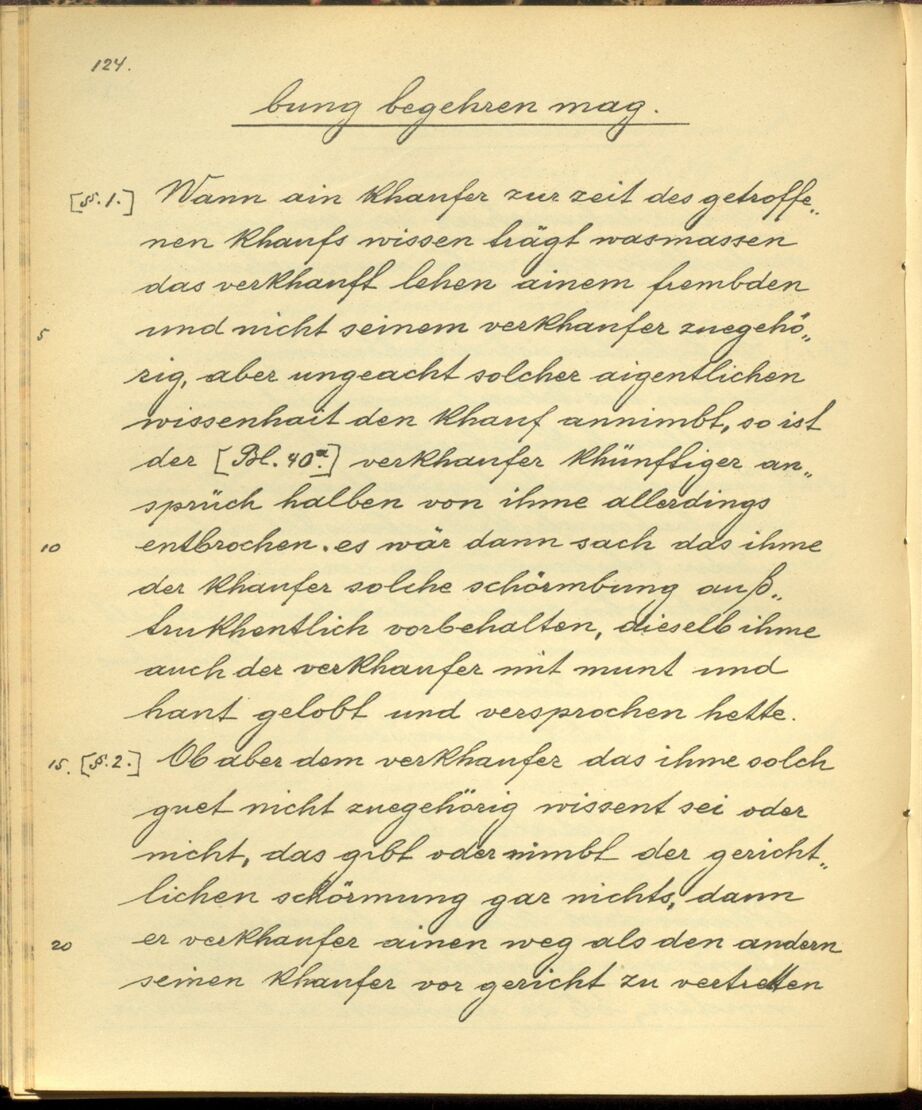 124.
bung begehren mag.
[§. 1.] Wann ain khaufer zur zeit des getroffe„
nen khaufs wissen trägt wasmassen
das verkhauft lehen ainem frembden
5 und nicht seinem verkhaufer zuegehö„
rig, aber ungeacht solcher aigentlichen
wissenhait den khauf annimbt, so ist
der [Bl. 40a.] verkhaufer khünftiger an„
sprüch halben von ihme allerdings
10 entbrochen. es wär dann sach das ihme
der khaufer solche schörmbung auß„
trukhentlich vorbehalten, dieselb ihme
auch der verkhaufer mit munt und
hant gelobt und versprochen hette.
15. [§. 2.] Ob aber dem verkhaufer das ihme solch
guet nicht zuegehörig wissent sei oder
nicht, das gibt oder nimbt der gericht„
lichen schörmung gar nichts, dann
20 er verkhaufer ainen weg als den andern
seinen khaufer vor gericht zu vertretten